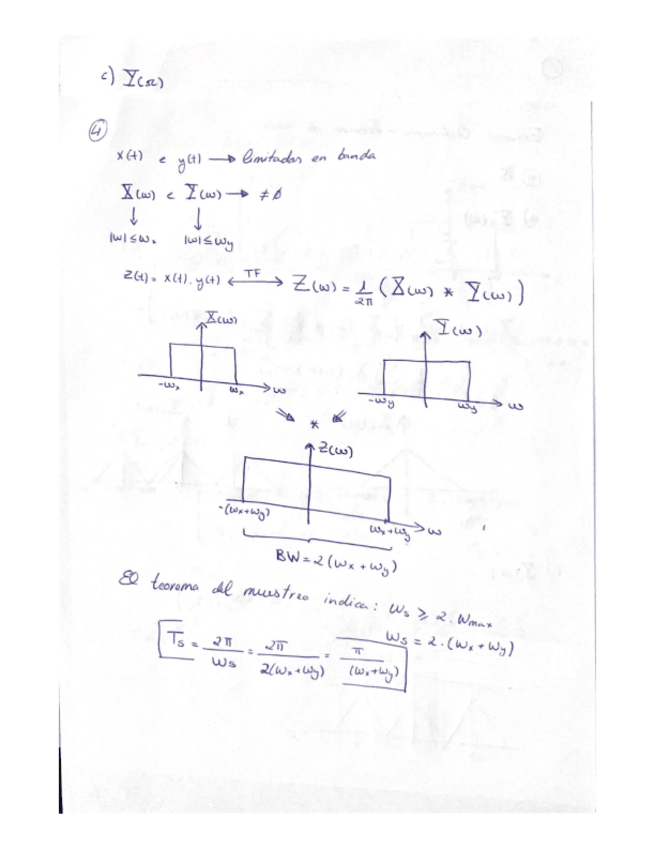 c) Y(Ω)
4
x(t) e y(t) → limitadas en banda
X(ω) e Y(ω) → ≠ ∅
↓ ↓
|ω| ≤ ωx |ω| ≤ ωy
Z(t) = x(t) . y(t) ←TF→ Z(ω) = 1/2π (X(ω) * Y(ω))
X(ω) Y(ω)
-ωx ωx ω -ωy ωy ω
*
Z(ω)
-(ωx+ωy) ωx+ωy ω
BW = 2(ωx + ωy)
El teorema del muestreo indica: ωs ≥ 2. ωmax
ωs = 2.(ωx + ωy)
Ts = 2π/ωs = 2π/2(ωx+ωy) = π/(ωx+ωy)